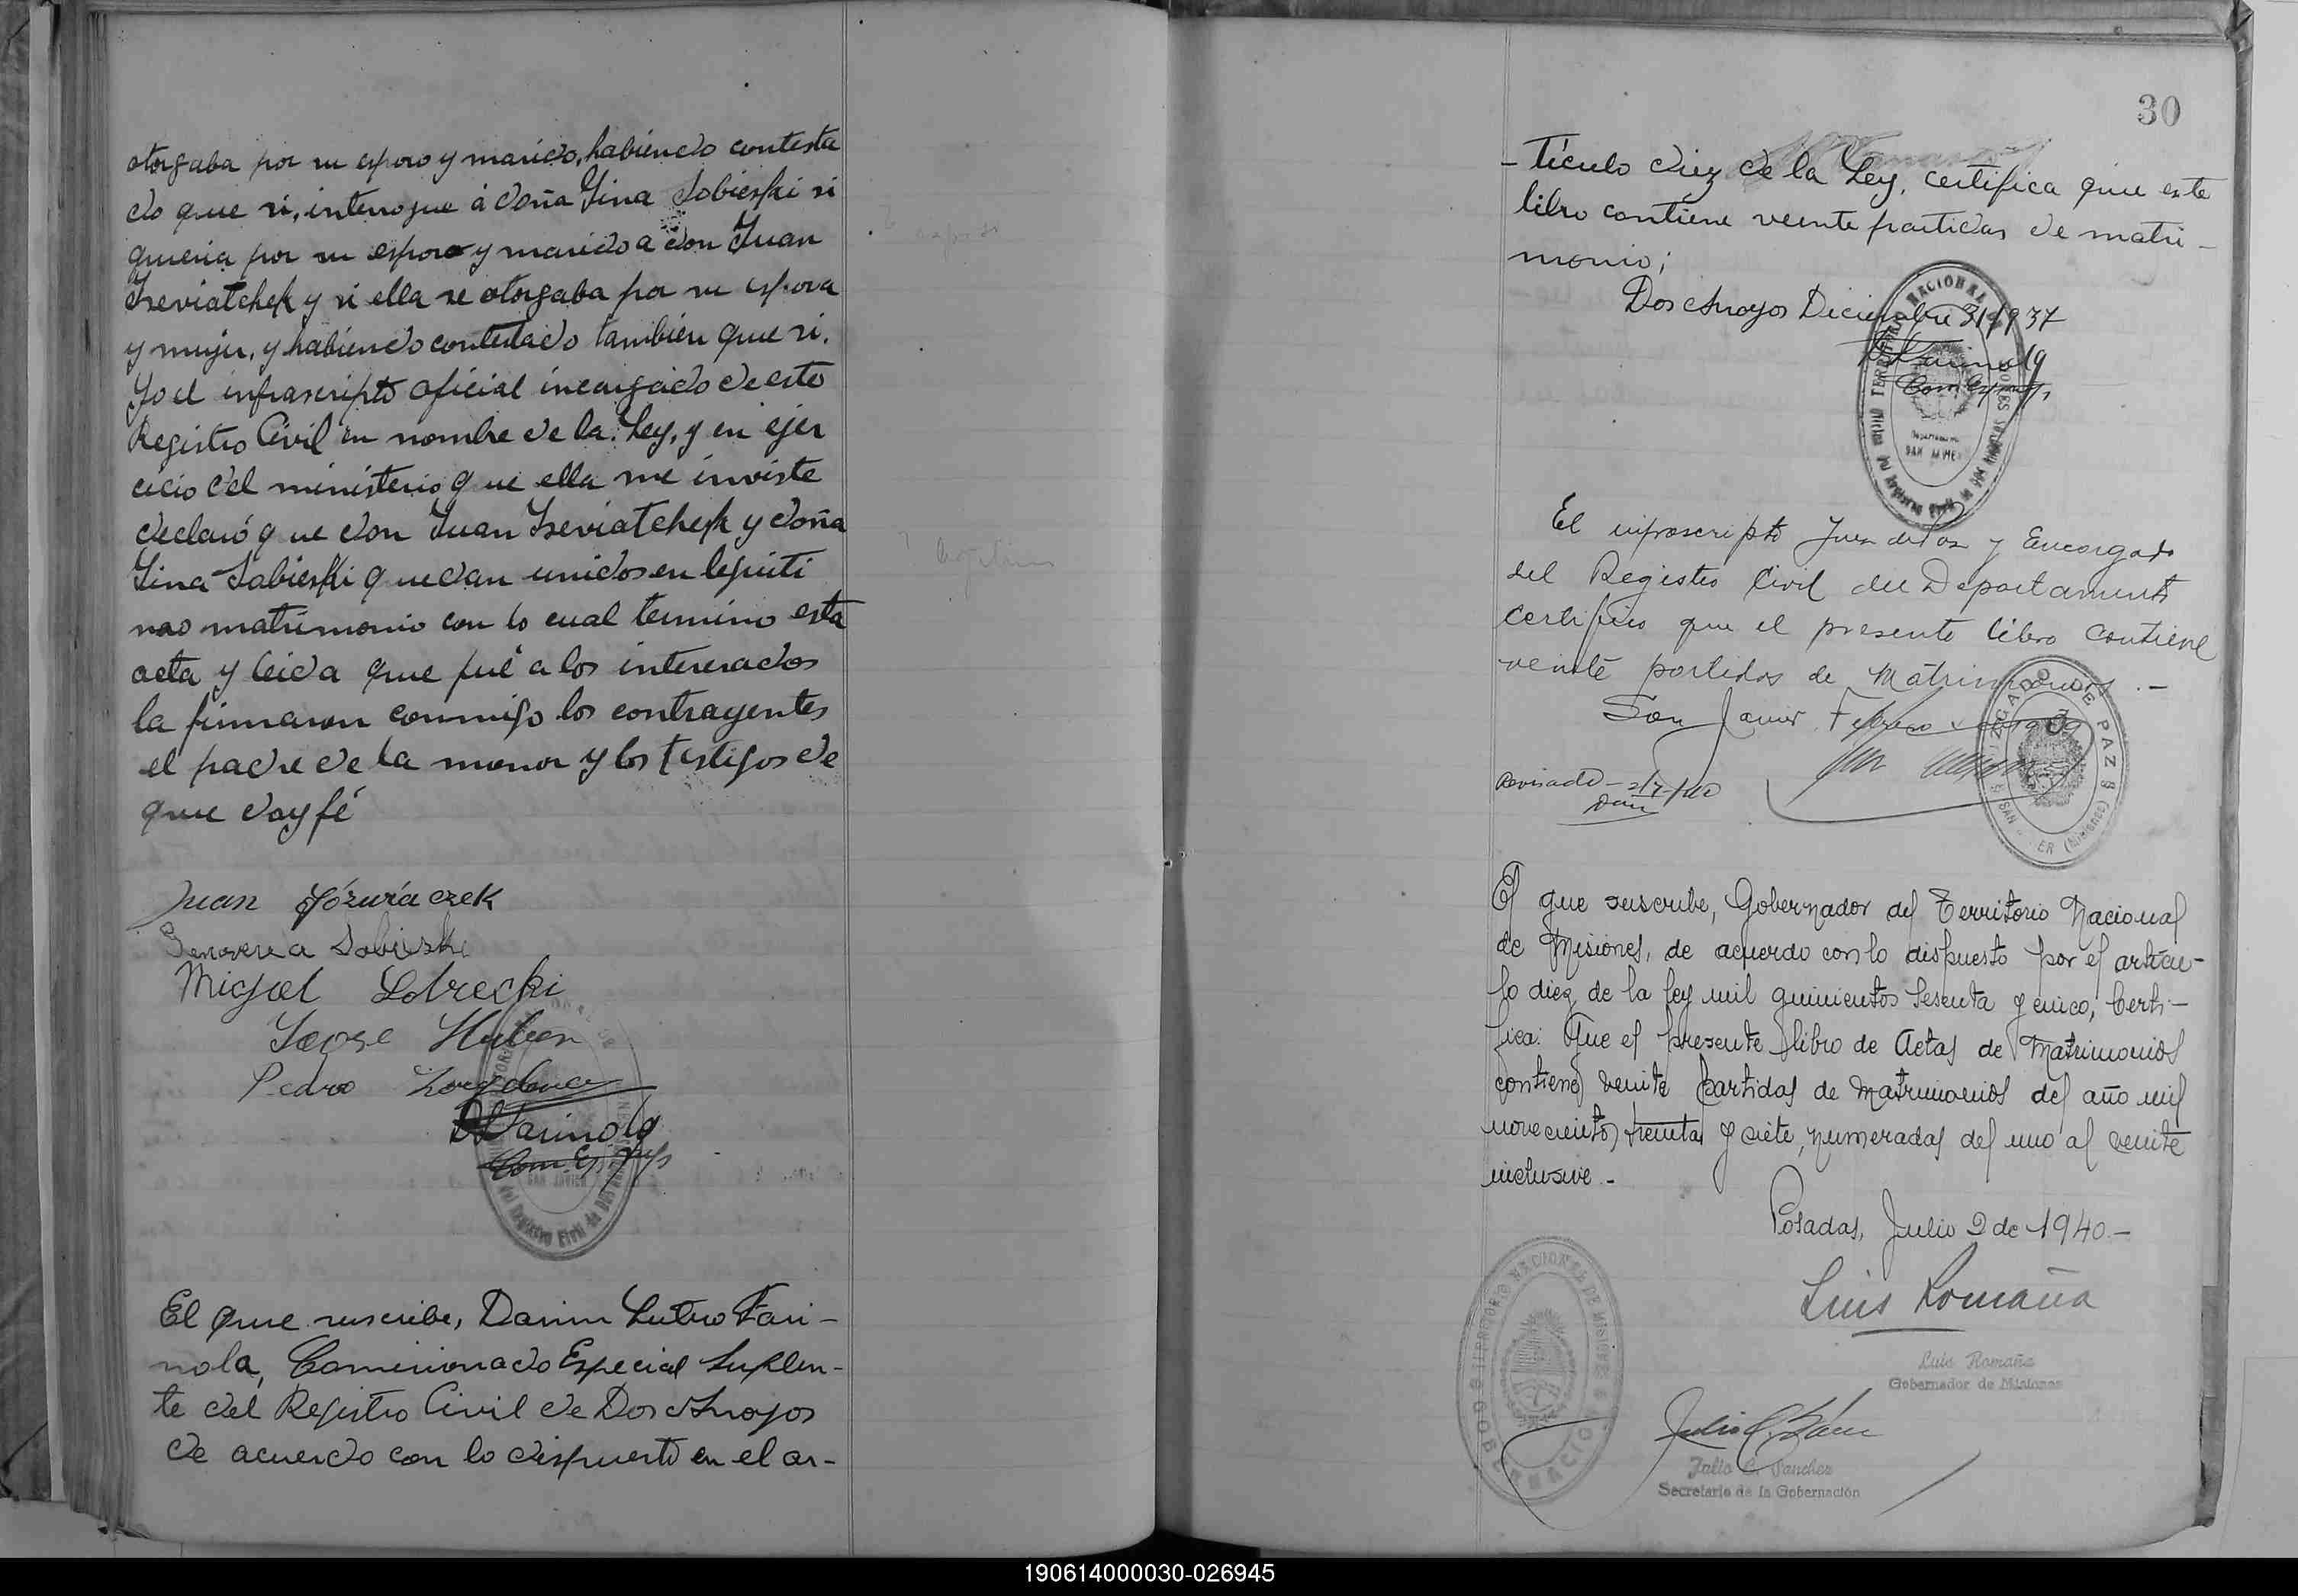 otorgaba por su esposo y marido, habiendo contesta
do que si, interrogue á doña Gina Sobieski si
queria por su esposo y marido a don Juan
Iseviatchek y si ella se otorgaba por su esposa
y mujer, y habiendo contestado también que si.
Yo el infrascripto oficial incargado de este
Registro Civil en nombre de la Ley, y en ejer
cicio del ministerio que ella me inviste
declaró que don Juan Iseviatchek y doña
Gina Sabieski quedan unidos en legiti
mao matrimonio con lo cual termino esta
acta y leida que fué a los interesados
la firmaron conmigo los contrayentes
el padre de la menor y los testigos de
que doy fé
Juan Józwiaczek
Genovevia Sobieski
Migal
Pedro
D L Farinola
Com. Esp.
El que suscribe, Dariu Lutero Fari-
nola, Comisionado Especial Suplen-
te del Registro Civil de Dos Arroyos
de acuerdo con lo dispuesto en el ar-
30
-tículo diez de la Ley, certifica que este
libro contiene veinte partidas de matri-
monio;
Dos Arroyos Diciembre 31/937
Farinola
Com. Esp.
El infrascripto Juez de Paz y Encargado
del Registro Civil del Departamento
certifico que el presente libro contiene
veinte partidas de Matrimonios.-
San Javier Febrero
JUZGADO DE PAZ
Revisado - 2/7/40
El que suscribe, Gobernador del Territorio Nacional
de Misiones, de acuerdo con lo dispuesto por el artícu-
lo diez de la ley mil quinientos sesenta y cinco, Certi-
fica: Que el presente libro de Actas de Matrimonios
contiene veinte partidas de Matrimonios del año mil
novecientos treinta y siete, numeradas del uno al veinte
inclusive.-
Posadas, Julio 2 de 1940.-
Luis Romaña
Luis Romaña
Gobernador de Misiones
Julio C. Sánchez
Julio C. Sanchez
Secretario de la Gobernación
190614000030-026945